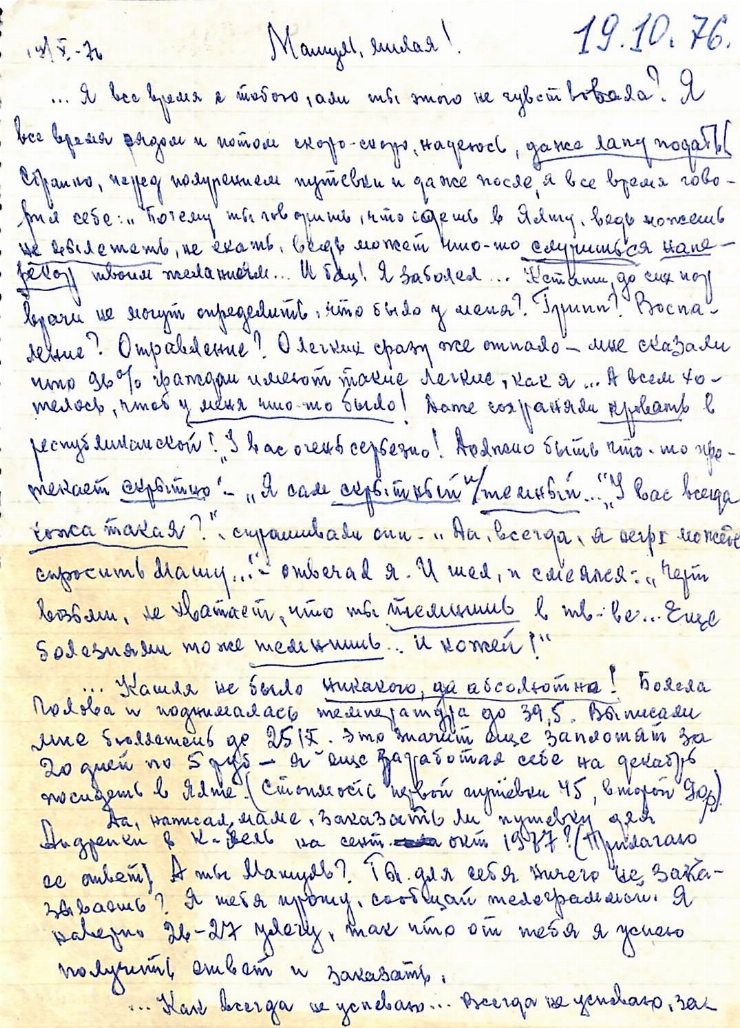 19.10.76.
19/X-76 Машуль, милая!
... Я все время с тобою, али ты этого не чувствовала? Я
все время рядом и потом скоро-скоро, надеюсь, даже лапу подать!
Странно, перед получением путевки и даже после, я все время гово-
рил себе: „Почему ты говоришь, что едешь в Ялту, ведь можешь
не вылететь, не ехать, ведь может что-то случиться напе-
рекор твоим желаниям... И бац! Я заболел... Кстати, до сих пор
врачи не могут определить, что было у меня? Грипп? Воспа-
ление? Отравление? О легких сразу же отпало – мне сказали
что 96% граждан имеют такие легкие, как я... А всем хо-
телось, чтоб у меня что-то было! Даже сохраняли кровать в
республиканской! „У вас очень серьезно! Должно быть что-то про-
текает скрытно“ – „Я сам скрытный и темный...“ „У вас всегда
кожа такая?“, спрашивали они – „Да, всегда, я могу
спросить Машу...“ – отвечал я. И шел, и смеялся: „Черт
возьми, не хватает, что ты темнишь в тв-ве... Еще
болезнями тоже темнишь... и кожей!“
... Кашля не было никакого, да абсолютно! Болела
голова и поднималась температура до 39,5. Выписали
мне бюллетень до 25/X. Это значит еще заплотят за
20 дней по 5 руб – я еще заработал себе на декабрь
посидеть в Ялте. (Стоимость первой путевки 45, второй 90р)
Да, написал маме, заказать ли путевку для
Андрейки в К-бель на сент. окт 1977? (Прилагаю
ее ответ) А ты Машуль? Ты для себя ничего не зака-
зываешь? Я тебя прошу, сообщай телеграммой. Я
наверно 26-27 улечу, так что от тебя я успею
получить ответ и заказать.
... Как всегда не успеваю... Всегда не успеваю, за-